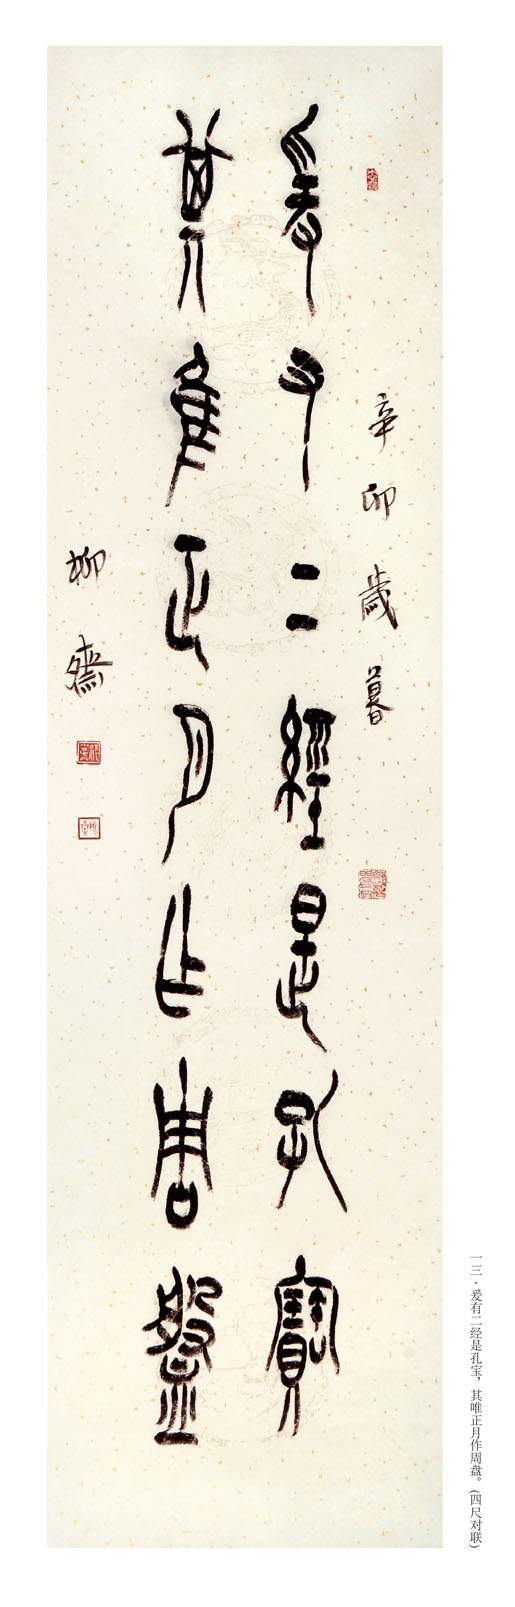 辛卯歲暮
爰有二經是孔寶
其隹正月乍周盤
柳齋
一三·爱有二经是孔宝，其唯正月作周盘。(四尺对联)